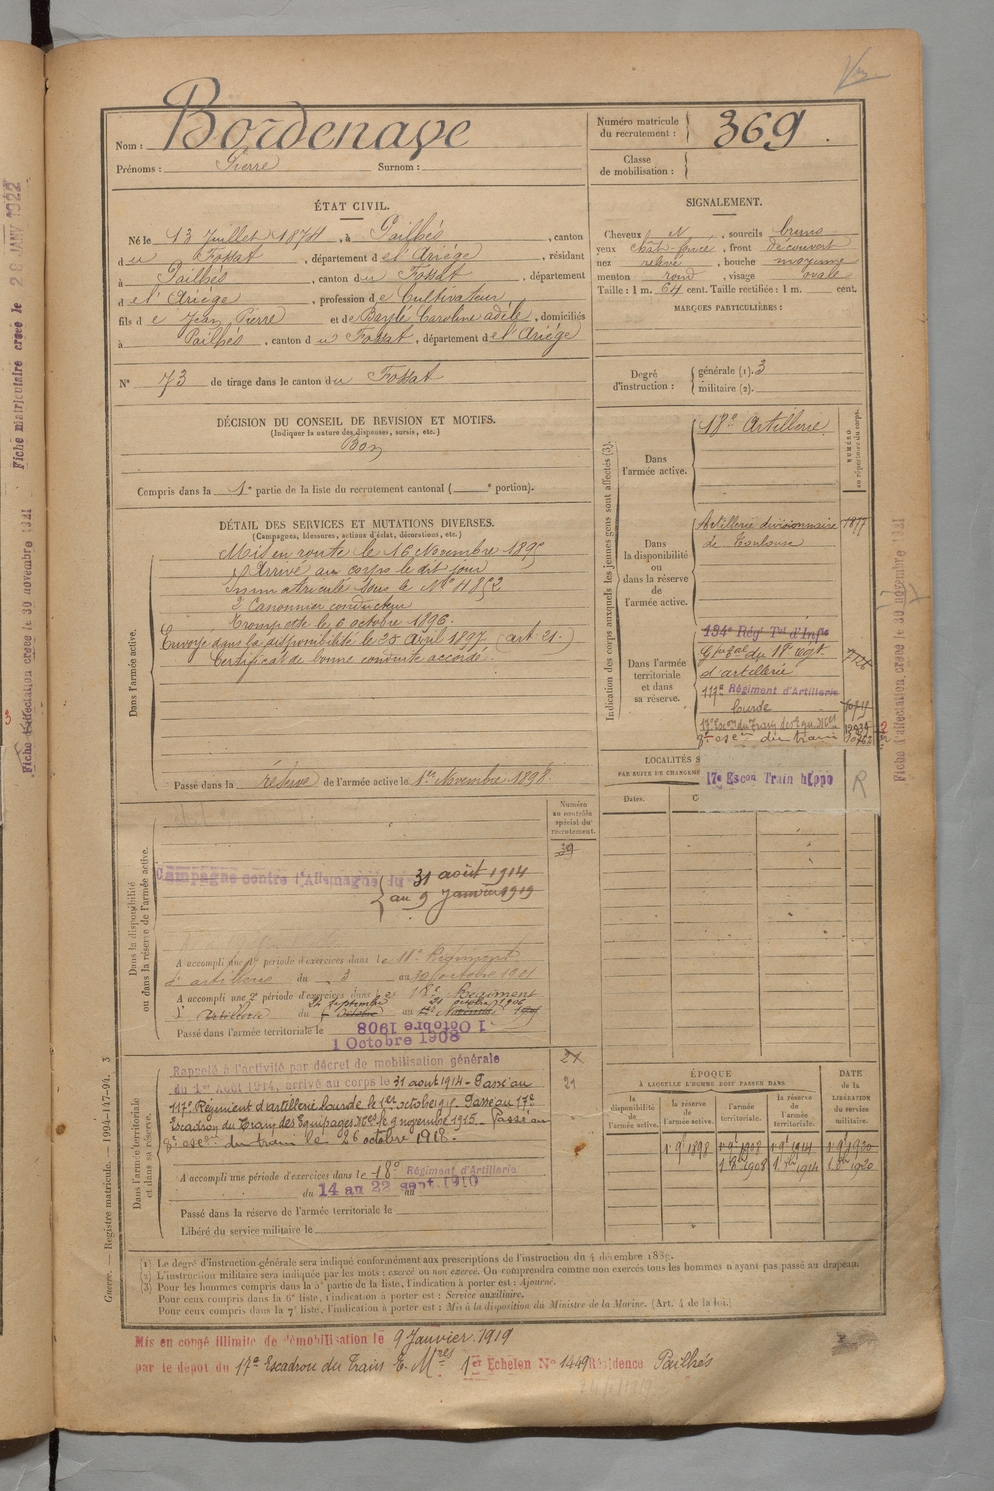 Nom : Bordenave
Prénoms : Pierre Surnom :
Numéro matricule du recrutement : 369.
Classe de mobilisation :
ÉTAT CIVIL.
Né le 13 Juillet 1874, à Pailhès, canton
du Fossat, département de l'Ariège, résidant
à Pailhès, canton du Fossat, département
de l'Ariège, profession de Cultivateur
fils de Jean Pierre et de Bayle Caroline adèle, domiciliés
à Pailhès, canton du Fossat, département de l'Ariège
N° 73 de tirage dans le canton du Fossat
SIGNALEMENT.
Cheveux N, sourcils bruns
yeux, front découvert
nez relevé, bouche moyenne
menton rond, visage ovale
Taille : 1 m. 64 cent. Taille rectifiée : 1 m. cent.
MARQUES PARTICULIÈRES :
Degré d'instruction : générale (1). 3
militaire (2).
DÉCISION DU CONSEIL DE REVISION ET MOTIFS.
(Indiquer la nature des dispenses, sursis, etc.)
Bon
Compris dans la 1e partie de la liste du recrutement cantonal ( e portion).
DÉTAIL DES SERVICES ET MUTATIONS DIVERSES.
(Campagnes, blessures, actions d'éclat, décorations, etc.)
Dans l'armée active.
Mis en route le 16 Novembre 1895
Arrivé au corps le dit jour
Immatriculé sous le N° 4852
2e Canonnier conducteur
Trompette le 6 octobre 1896.
Envoyé dans la disponibilité le 20 Avril 1897 (art. 21.)
Certificat de bonne conduite accordé.
Passé dans la réserve de l'armée active le 1er Novembre 1898
Indication des corps auxquels les jeunes gens sont affectés (3).
NUMÉRO au répertoire du corps.
Dans l'armée active.
18e Artillerie
Dans la disponibilité ou dans la réserve de l'armée active.
Artillerie divisionnaire 1877
de Toulouse
Dans l'armée territoriale et dans sa réserve.
134e Rég Tal d'Infie
Gpe tal du 18e régt
d'artillerie
117e Régiment d'Artillerie
lourde
17e Escon du Train des Equ. Mres
8e escon du train
LOCALITÉS S
PAR SUITE DE CHANGEME
17e Escon Train hippo
R
Dates.
Numéro au contrôle spécial du recrutement.
39
Dans la disponibilité ou dans la réserve de l'armée active.
Campagne contre l'Allemagne du 31 août 1914
au 9 Janvier 1919
A accompli une 1e période d'exercices dans le 11e Régiment
d'artillerie du 3 au 30 octobre 1901
A accompli une 2e période d'exercices dans le 18e Régiment
d'Artillerie du 24 Septembre au 21 octobre 1906
Passé dans l'armée territoriale le 1 Octobre 1908
1 Octobre 1908
Dans l'armée territoriale et dans sa réserve.
Rappelé à l'activité par décret de mobilisation générale
du 1er Août 1914, arrivé au corps le 31 août 1914 - Passé au
117e Régiment d'artillerie lourde le 1er octobre 1915. Passé au 17e
Escadron du Train des Equipages Mres le 9 novembre 1915 - Passé au
8e escon du train le 26 octobre 1918.
21
A accompli une période d'exercices dans le 18e Régiment d'Artillerie
du 14 au 22 sept. 1910 au
Passé dans la réserve de l'armée territoriale le
Libéré du service militaire le
ÉPOQUE
À LAQUELLE L'HOMME DOIT PASSER DANS
DATE de la LIBÉRATION du service militaire.
la disponibilité de l'armée active.
la réserve de l'armée active.
l'armée territoriale.
la réserve de l'armée territoriale.
1 9bre 1898 1 9bre 1908 1 9bre 1914 1 9bre 1920
1 8bre 1908 1 8bre 1914 1 8bre 1920
(1) Le degré d'instruction générale sera indiqué conformément aux prescriptions de l'instruction du 4 décembre 1889.
(2) L'instruction militaire sera indiquée par les mots : exercé ou non exercé. On comprendra comme non exercés tous les hommes n'ayant pas passé au drapeau.
(3) Pour les hommes compris dans la 5e partie de la liste, l'indication à porter est : Ajourné.
Pour ceux compris dans la 6e liste, l'indication à porter est : Service auxiliaire.
Pour ceux compris dans la 7e liste, l'indication à porter est : Mis à la disposition du Ministre de la Marine. (Art. 4 de la loi.)
Mis en congé illimité de démobilisation le 9 Janvier 1919
par le dépôt du 17e Escadron du Train E. Mres 1er Echelon N° 1449 Résidence Pailhès
Guerre. — Registre matricule. — 1994-147-94. 3
Fiche matriculaire créée le 28 JANV 1922
Fiche d'affectation créée le 30 novembre 1921
Fiche d'affectation créée le 30 novembre 1921